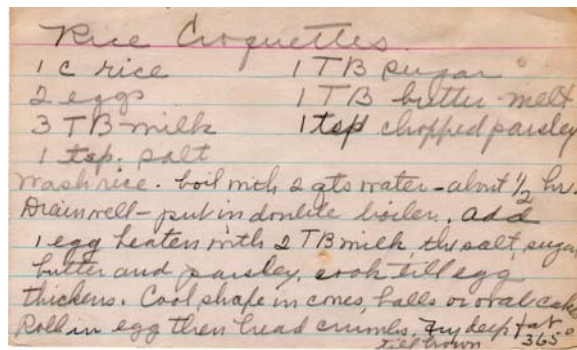 Rice Croquettes
1 c rice 1 TB sugar
2 eggs 1 TB butter-melt
3 TB milk 1 tsp chopped parsley
1 tsp. salt
Wash rice. boil with 2 qts water - about 1/2 hr.
Drain well - put in double boiler. add
1 egg beaten with 2 TB milk, the salt, sugar,
butter and parsley. cook till egg
thickens. Cool, shape in cones, balls or oval cakes
Roll in egg then bread crumbs. Fry deep fat
till brown 365°